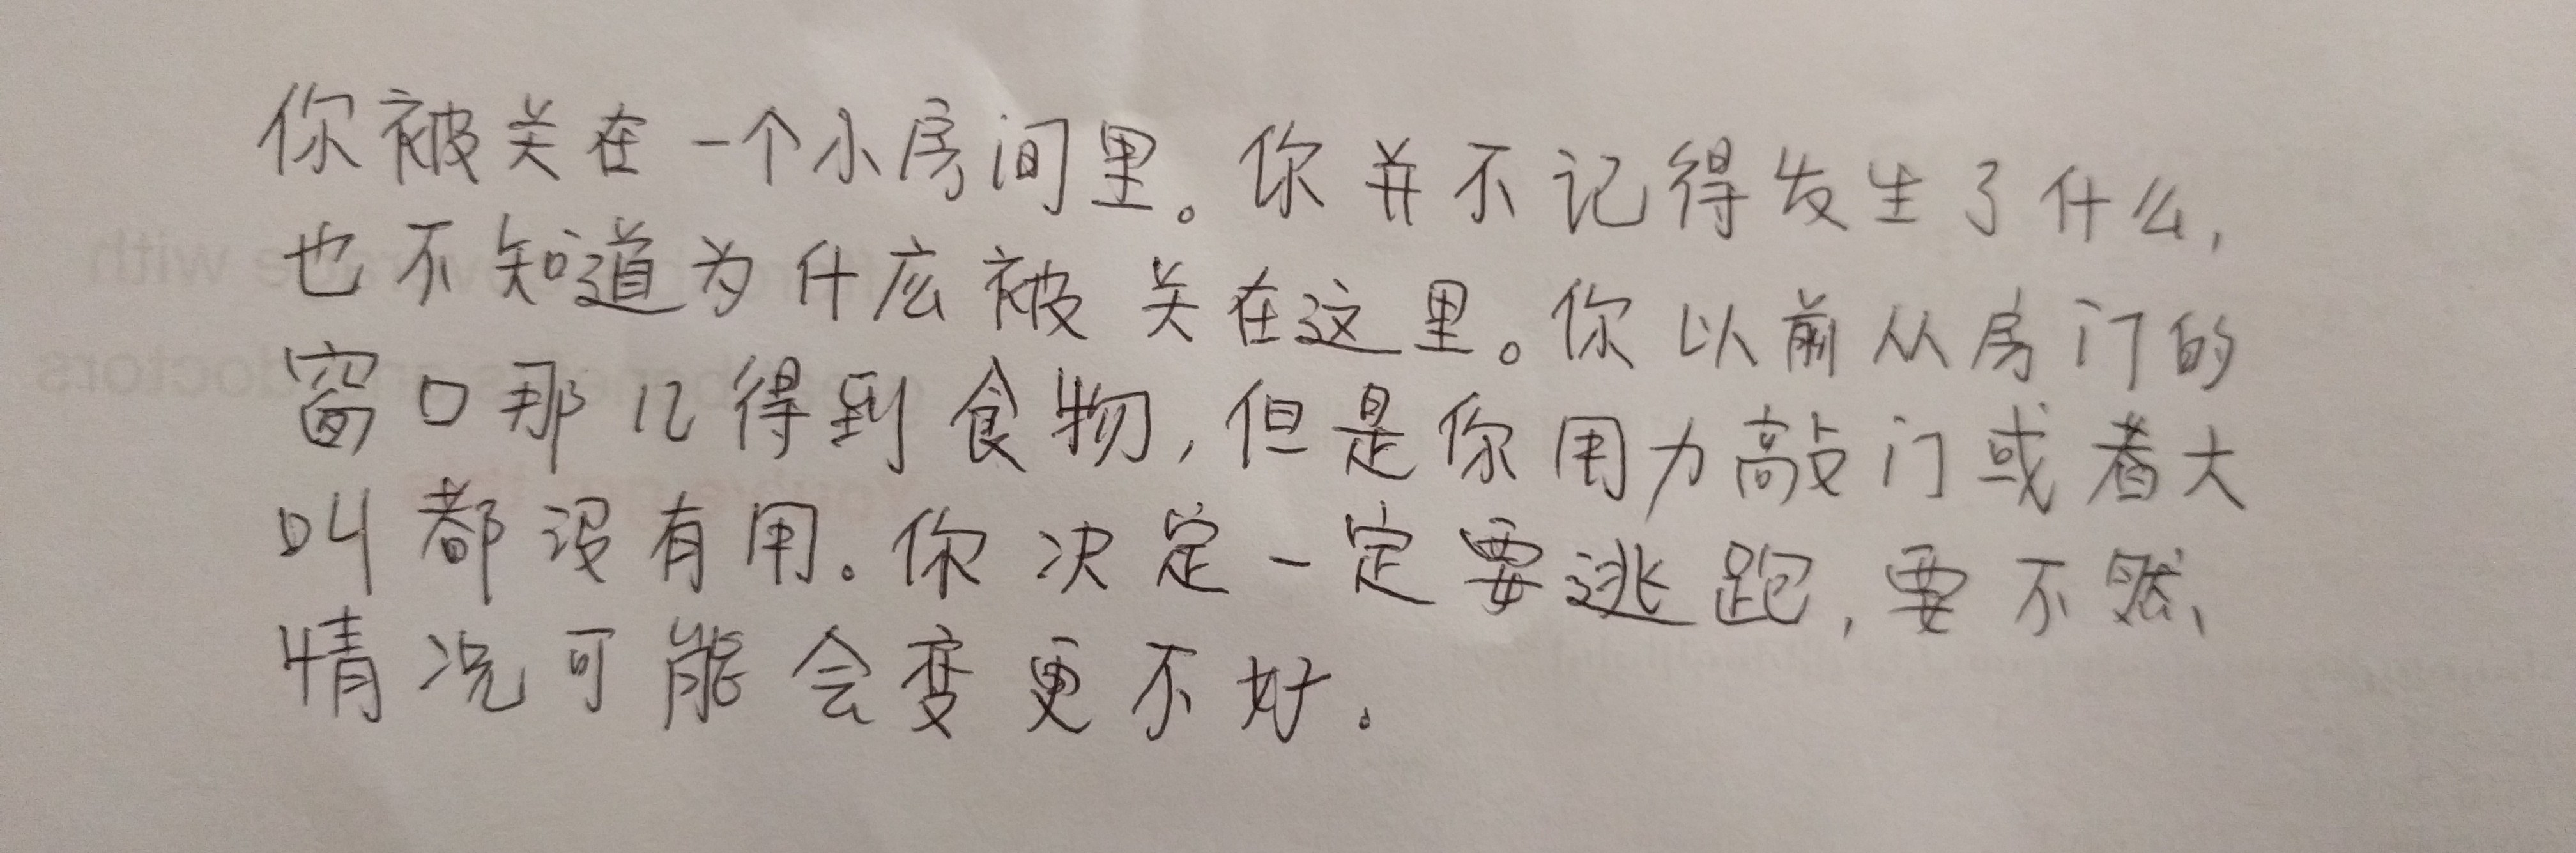 你被关在一个小房间里。你并不记得发生了什么,
也不知道为什么被关在这里。你以前从房门的
窗口那儿得到食物,但是你用力敲门或者大
叫都没有用。你决定一定要逃跑,要不然
情况可能会变更不好。